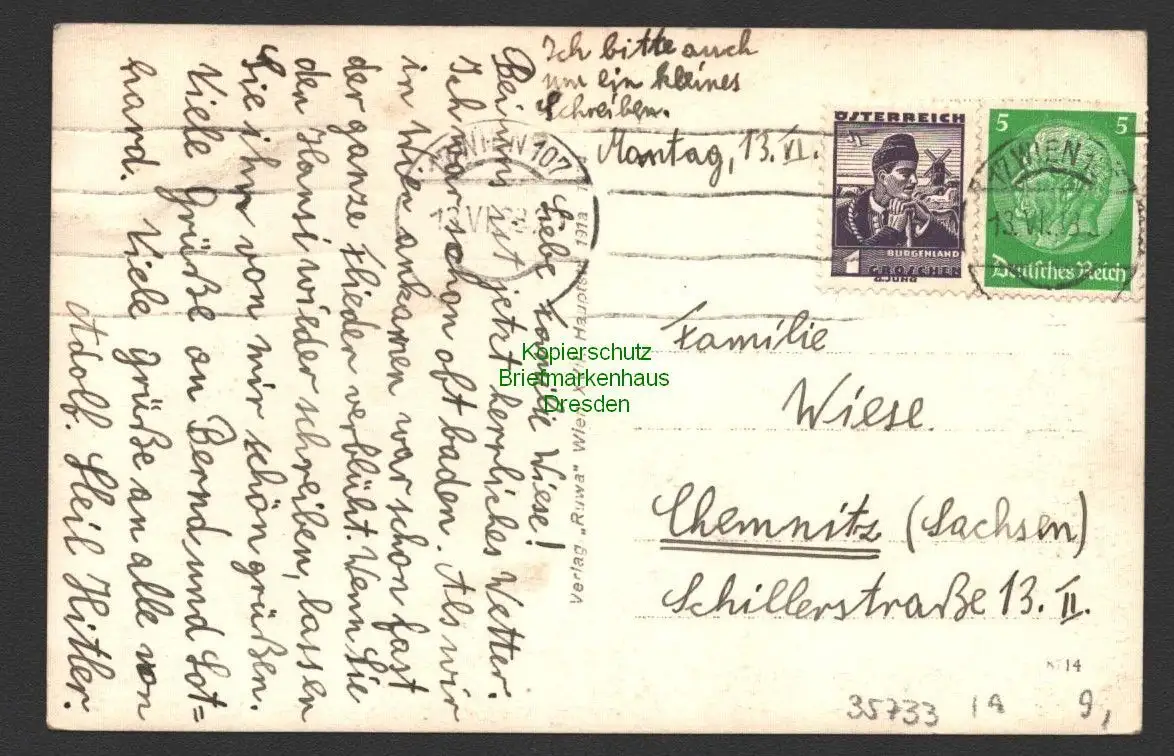 Ich bitte auch
um ein kleines
Schreiben.
Montag, 13. VI.
Liebe Familie Wiese!
Bei uns ist jetzt herrliches Wetter.
Ich war schon oft baden. Als wir
in Wien ankamen war schon fast
der ganze Flieder verblüht. Wenn Sie
den Hansi wieder schreiben, lassen
Sie ihn von mir schön grüßen.
Viele Grüße an Bernd und Lot=
hard. Viele Grüße an alle von
Adolf. Heil Hitler.
Verlag „Ruwa" Wien
ÖSTERREICH
BURGENLAND
1 GROSCHEN
5 5
Deutsches Reich
WIEN 107
WIEN
13.VI.
Familie
Wiese.
Chemnitz (Sachsen)
Schillerstraße 13. II.
Kopierschutz
Briefmarkenhaus
Dresden
35733 1A 9,